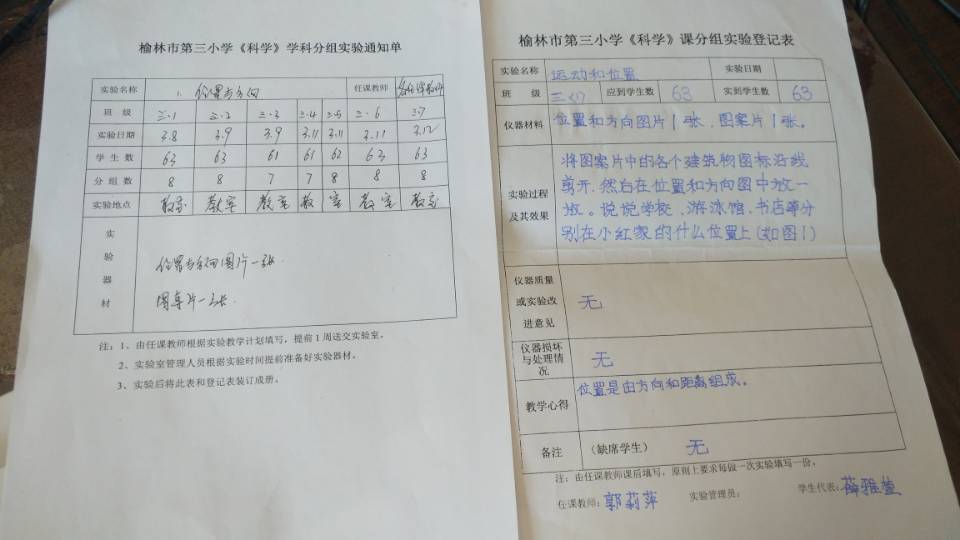 榆林市第三小学《科学》学科分组实验通知单
实验名称 1. 位置与方向 任课教师 各任课教师
班 级 三·1 三·2 三·3 三·4 三·5 三·6 三·7
实验日期 3.8 3.9 3.9 3.11 3.11 3.11 3.12
学 生 数 63 63 61 61 62 63 63
分 组 数 8 8 7 7 8 8 8
实验地点 教室 教室 教室 教 室 教室 教室
实验器材
位置与方向图片一张.
图案片一张.
注：1、由任课教师根据实验教学计划填写，提前1周送交实验室。
2、实验室管理人员根据实验时间提前准备好实验器材。
3、实验后将此表和登记表装订成册。
榆林市第三小学《科学》课分组实验登记表
实验名称 运动和位置 实验日期
班 级 三(1) 应到学生数 63 实到学生数 63
仪器材料 位置和方向图片1张、图案片1张。
实验过程及其效果
将图案片中的各个建筑物图标沿线
剪开.然后在位置和方向图中放一
放。说说学校、游泳馆、书店等分
别在小红家的什么位置上(如图1)
仪器质量
或实验改
进意见
无
仪器损坏
与处理情
况
无
教学心得 位置是由方向和距离组成。
备注 (缺席学生) 无
注：由任课教师课后填写，原则上要求每做一次实验填写一份。
任课教师：郭莉萍 实验管理员： 学生代表：薛雅萱